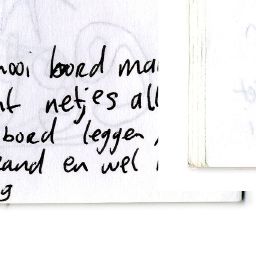 mooi bord ma
nt netjes all
bord leggen,
rand en wel
g